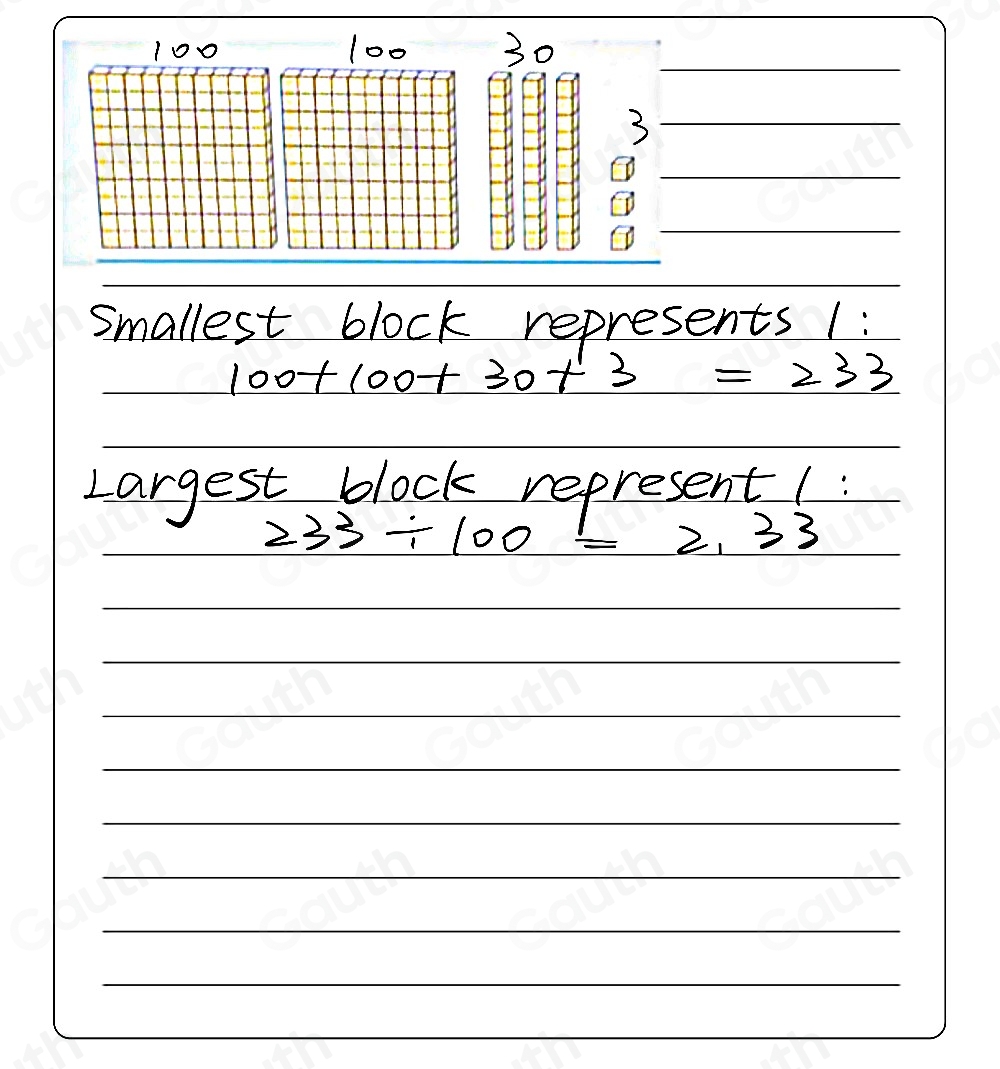 100 100 30
3
Smallest block represents 1:
100+100+30+3 = 233
Largest block represent 1:
233÷100 = 2.33
Gauth